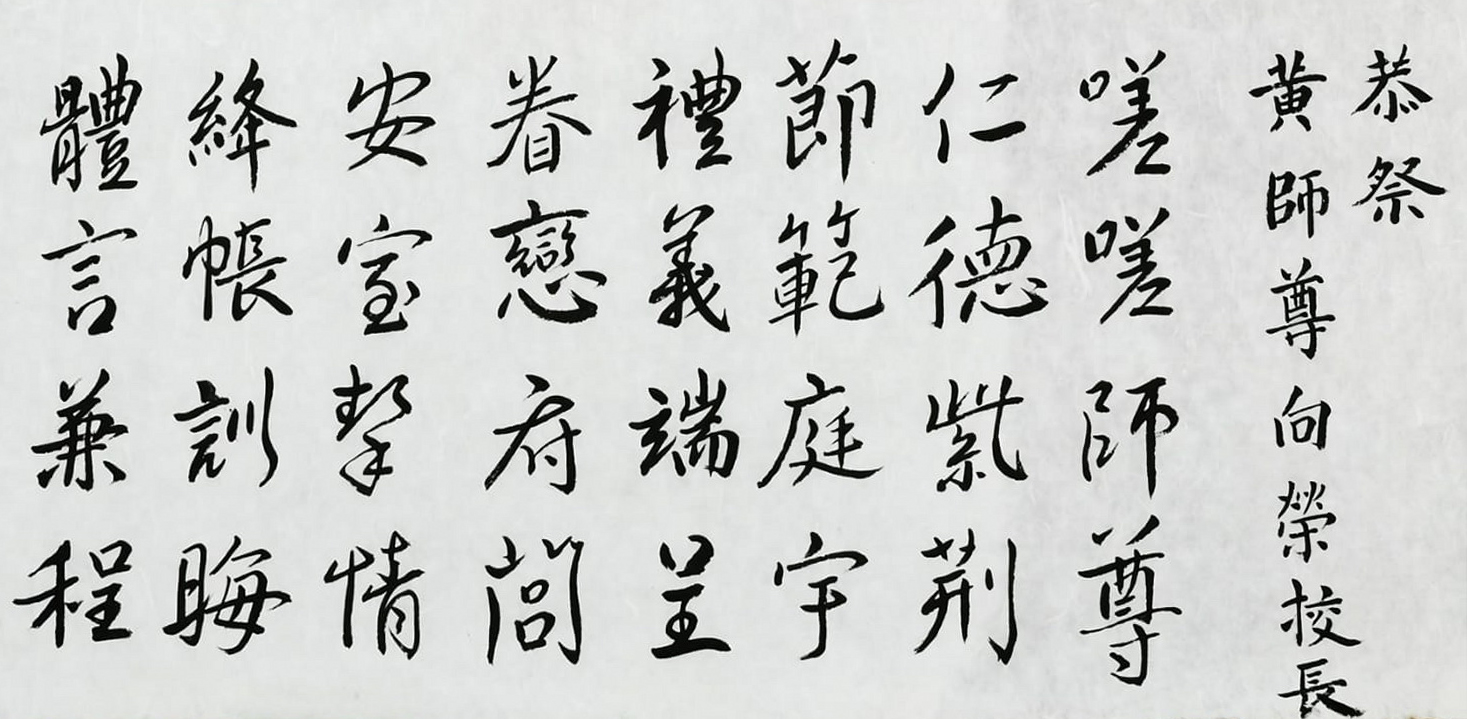 恭祭
黄師尊向榮校長
嗟嗟師尊
仁德紫荆
節範庭宇
禮義端呈
眷戀府
安室挈情
絳帳訓晦
體言兼程